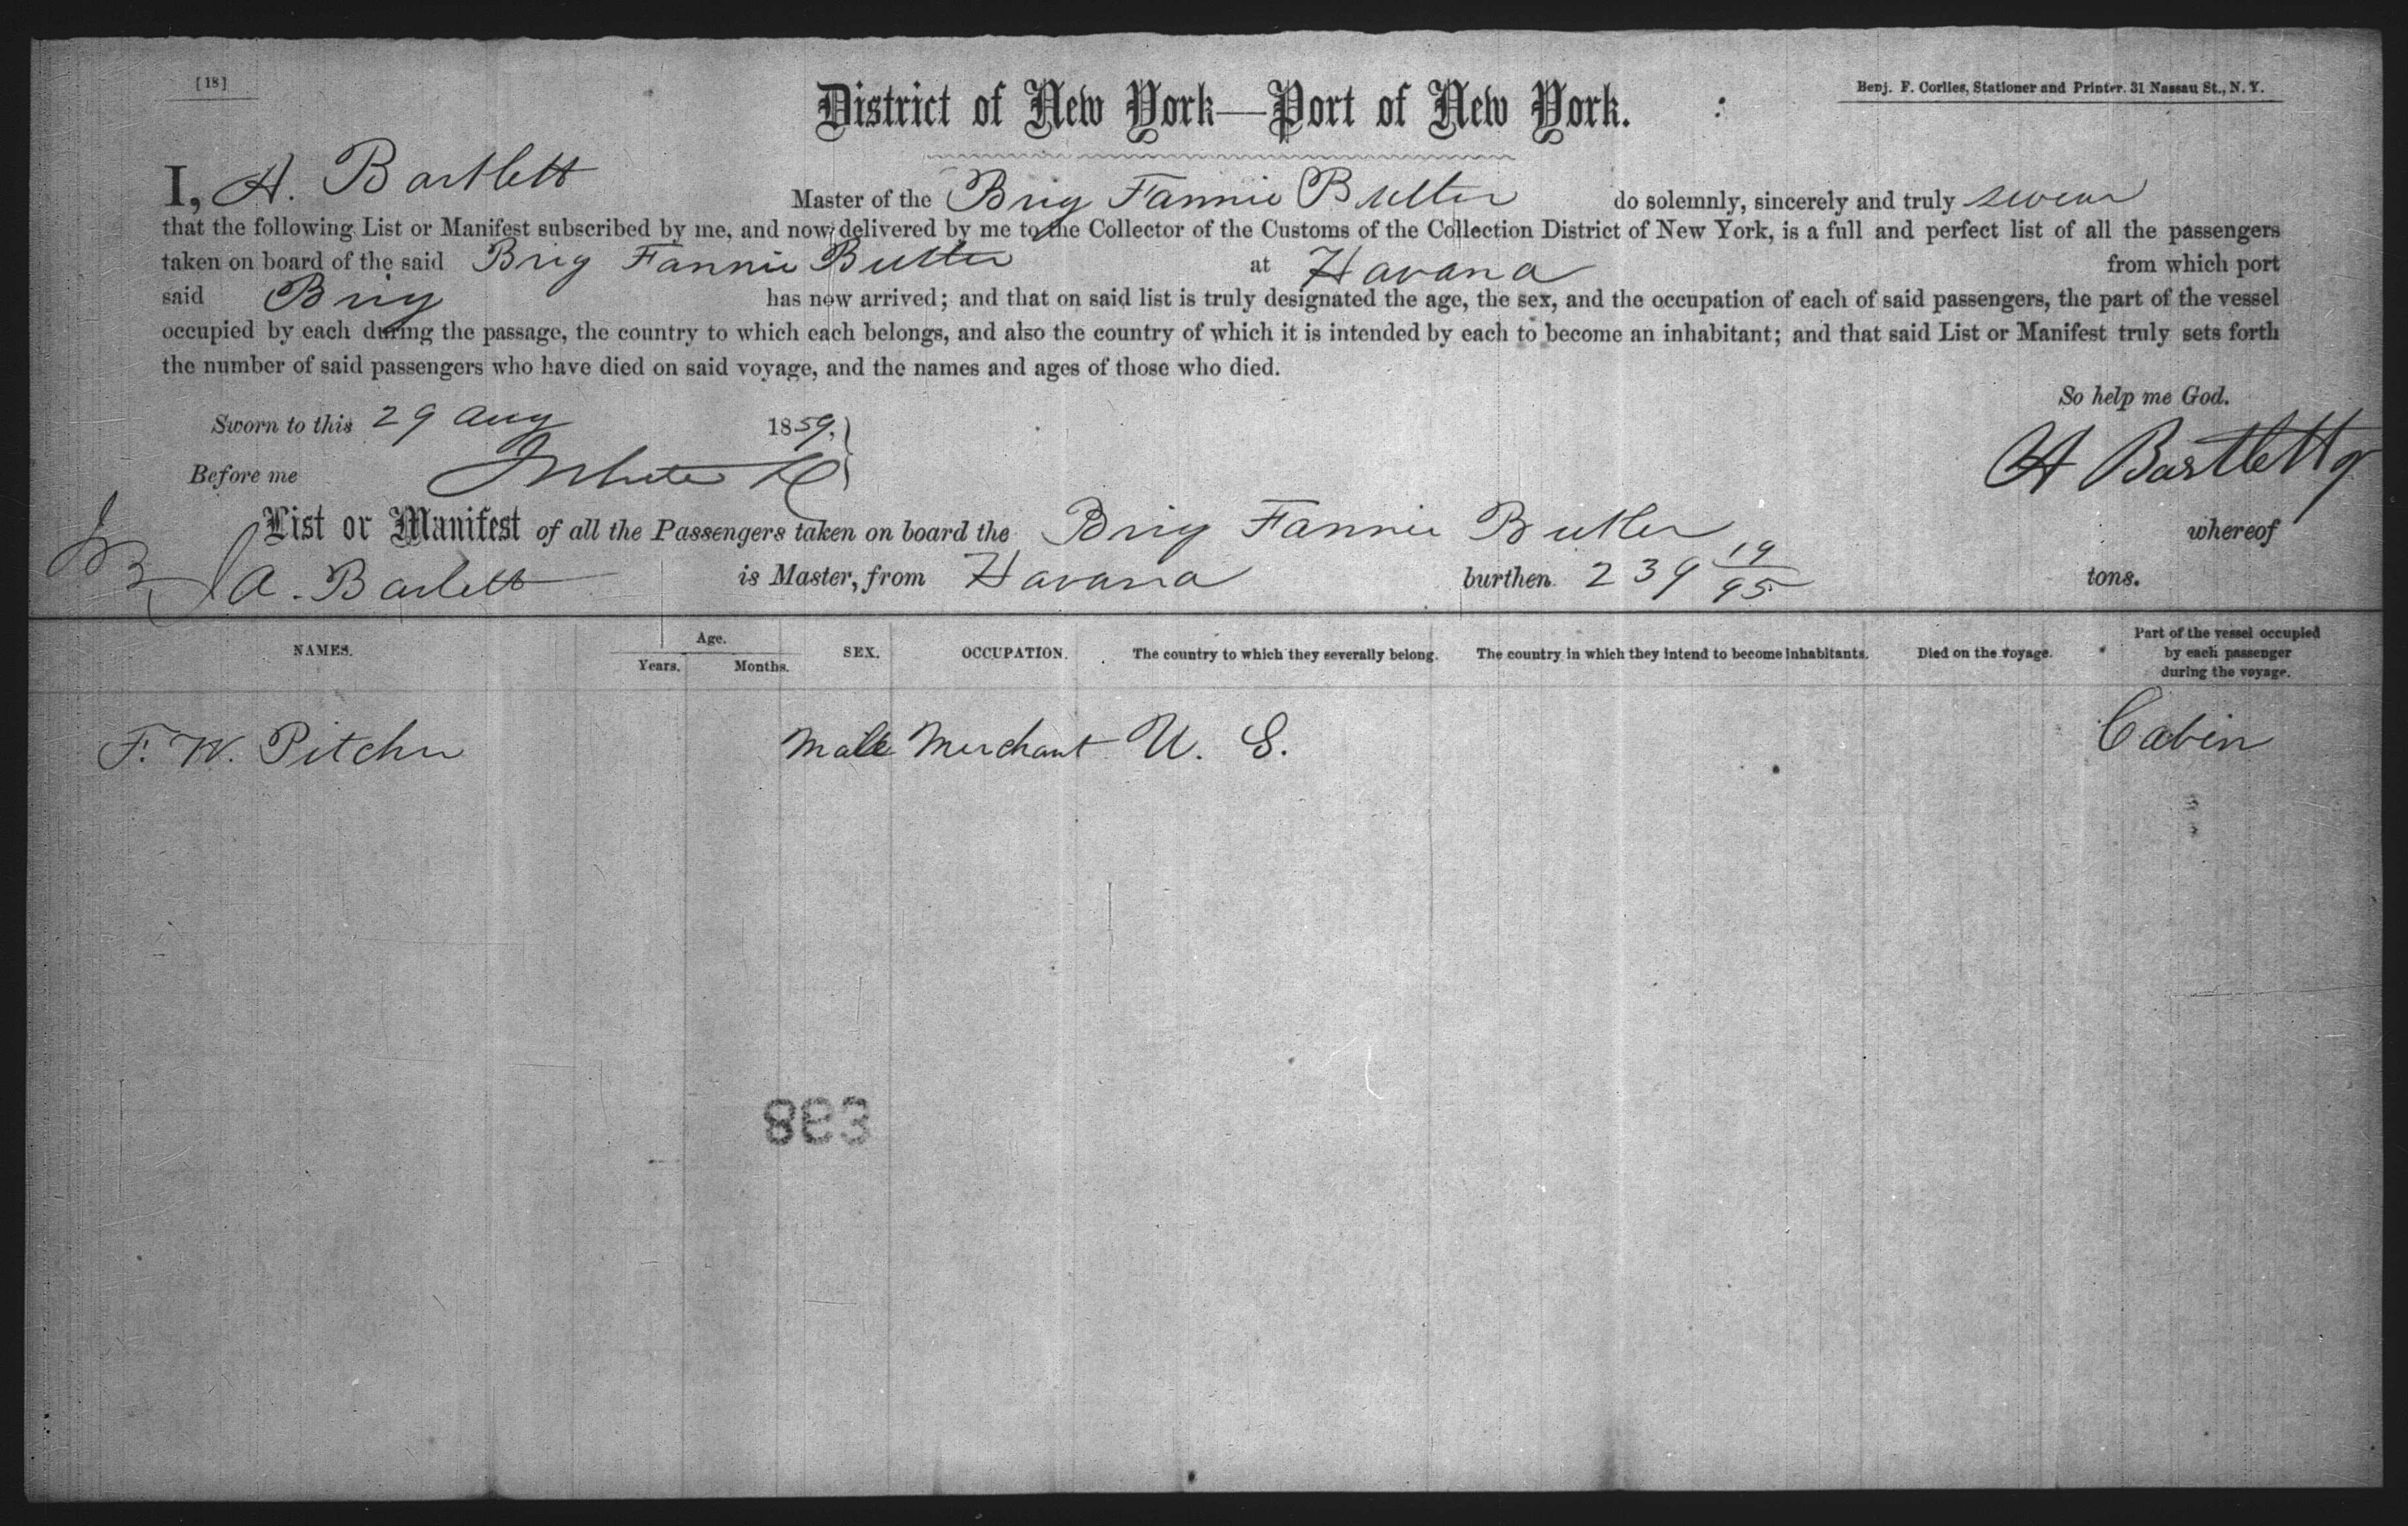 [18]
District of New York—Port of New York.
Benj. F. Corlies, Stationer and Printer. 31 Nassau St., N. Y.
I, A. Bartlett Master of the Brig Fannie Butler do solemnly, sincerely and truly swear
that the following List or Manifest subscribed by me, and now delivered by me to the Collector of the Customs of the Collection District of New York, is a full and perfect list of all the passengers
taken on board of the said Brig Fannie Butler at Havana from which port
said Brig has now arrived; and that on said list is truly designated the age, the sex, and the occupation of each of said passengers, the part of the vessel
occupied by each during the passage, the country to which each belongs, and also the country of which it is intended by each to become an inhabitant; and that said List or Manifest truly sets forth
the number of said passengers who have died on said voyage, and the names and ages of those who died.
So help me God.
Sworn to this 29 Aug 1859.
A Bartlett
Before me
List or Manifest of all the Passengers taken on board the Brig Fannie Butler whereof
A. Barlett is Master, from Havana burthen 239 19/95 tons.
NAMES. Age. Years. Months. SEX. OCCUPATION. The country to which they severally belong. The country in which they intend to become inhabitants. Died on the voyage. Part of the vessel occupied by each passenger during the voyage.
F. W. Pitcher Male Merchant U. S. Cabin